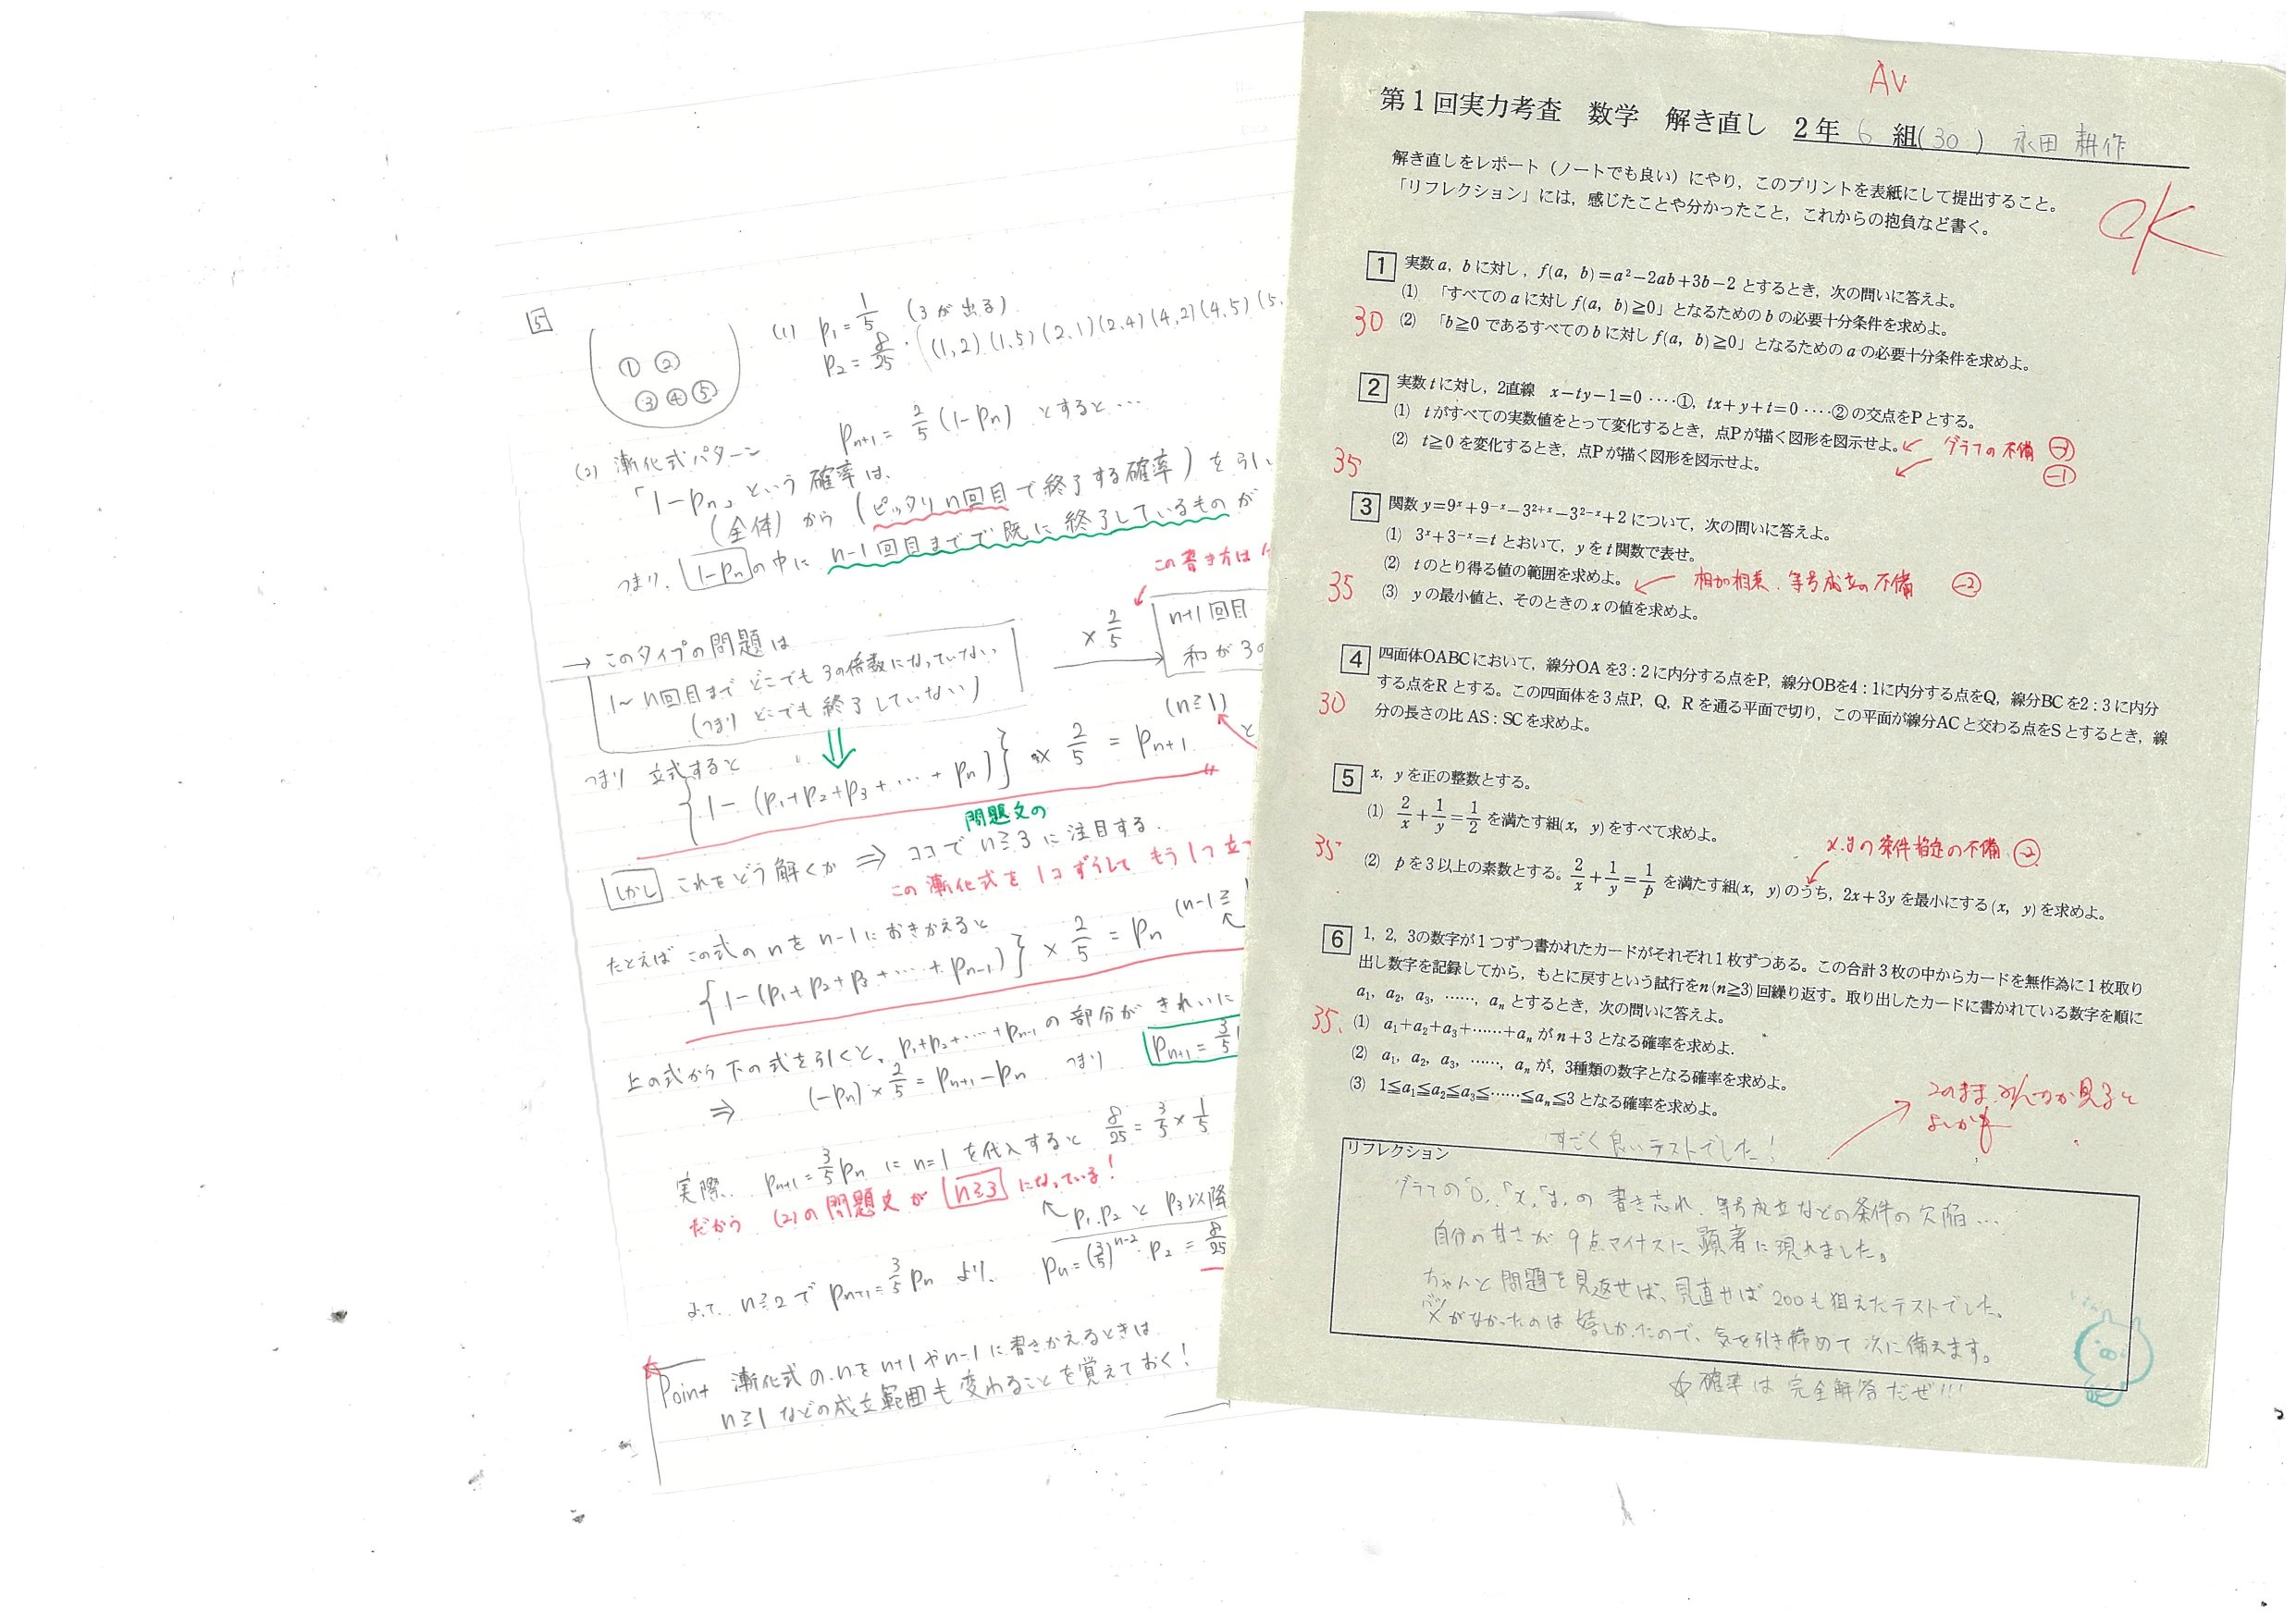 5
① ②
③ ④ ⑤
(1) p₁ = 1/5 (3が出る)
p₂ = 8/25 : (1,2)(1,5)(2,1)(2,4)(4,2)(4,5)(5,
(2) 漸化式パターン pₙ₊₁ = 2/5(1-pₙ) とすると…
「1-pₙ」という確率は、
(全体)から(ピッタリn回目で終了する確率)を引い
つまり、1-pₙの中にn-1回目までで既に終了しているものが
この書き方は
→このタイプの問題は
1〜n回目までどこでも3の倍数になっていない
(つまりどこでも終了していない)
×2/5
n+1回目
和が3の
(n≧1)
つまり 立式すると
{1-(p₁+p₂+p₃+…+pₙ)}×2/5 = pₙ₊₁ と
問題文の
しかし これをどう解くか ⇒ ココでn≧3に注目する.
この漸化式を1コずらしてもう1つ立つ
たとえばこの式のnをn-1におきかえると
{1-(p₁+p₂+p₃+…+pₙ₋₁)}×2/5 = pₙ (n-1≧
上の式から下の式を引くと、p₁+p₂+…+pₙ₋₁の部分がきれいに
⇒ (-pₙ)×2/5 = pₙ₊₁-pₙ つまり pₙ₊₁=3/5
実際、pₙ₊₁=3/5pₙにn=1を代入すると 8/25=3/5×1/5
だから (2)の問題文がn≧3になっている!
p₁,p₂とp₃以降
よって n≧2で pₙ₊₁=3/5pₙ より、 pₙ=(3/5)ⁿ⁻²・p₂=8/25
Point 漸化式のnをn+1やn-1に書きかえるときは
n≧1などの成立範囲も変わることを覚えておく!
AV
第1回実力考査 数学 解き直し 2年 6 組(30) 永田 耕作
解き直しをレポート(ノートでも良い)にやり，このプリントを表紙にして提出すること。
「リフレクション」には，感じたことや分かったこと，これからの抱負など書く。
OK
1 実数a, bに対し，f(a, b)=a²−2ab+3b−2とするとき，次の問いに答えよ。
(1) 「すべてのaに対しf(a, b)≧0」となるためのbの必要十分条件を求めよ。
30 (2) 「b≧0であるすべてのbに対しf(a, b)≧0」となるためのaの必要十分条件を求めよ。
2 実数tに対し，2直線 x−ty−1=0 ‥‥①, tx+y+t=0 ‥‥② の交点をPとする。
(1) tがすべての実数値をとって変化するとき，点Pが描く図形を図示せよ。 グラフの不備
35 (2) t≧0を変化するとき，点Pが描く図形を図示せよ。 -1
3 関数y=9ˣ+9⁻ˣ−3²⁺ˣ−3²⁻ˣ+2について，次の問いに答えよ。
(1) 3ˣ+3⁻ˣ=tとおいて，yをt関数で表せ。
(2) tのとり得る値の範囲を求めよ。 相加相乗、等号成立の不備 -2
35 (3) yの最小値と、そのときのxの値を求めよ。
4 四面体OABCにおいて，線分OAを3：2に内分する点をP，線分OBを4：1に内分する点をQ，線分BCを2：3に内分
30 する点をRとする。この四面体を3点P，Q，Rを通る平面で切り，この平面が線分ACと交わる点をSとするとき，線
分の長さの比AS：SCを求めよ。
5 x，yを正の整数とする。
(1) 2/x+1/y=1/2 を満たす組(x，y)をすべて求めよ。
x,yの条件指定の不備 -2
35 (2) pを3以上の素数とする。2/x+1/y=1/p を満たす組(x，y)のうち，2x+3yを最小にする(x，y)を求めよ。
6 1，2，3の数字が1つずつ書かれたカードがそれぞれ1枚ずつある。この合計3枚の中からカードを無作為に1枚取り
出し数字を記録してから，もとに戻すという試行をn(n≧3)回繰り返す。取り出したカードに書かれている数字を順に
a₁，a₂，a₃，……，aₙとするとき，次の問いに答えよ。
35. (1) a₁+a₂+a₃+……+aₙがn+3となる確率を求めよ.
(2) a₁，a₂，a₃，……，aₙが，3種類の数字となる確率を求めよ。
(3) 1≦a₁≦a₂≦a₃≦……≦aₙ≦3となる確率を求めよ。
このまま、みんなが見ると
よいかも
すごく良いテストでした!
リフレクション
グラフの「0」「x」「y」の書き忘れ、等号成立などの条件の欠陥…
自分の甘さが9点マイナスに顕著に現れました。
ちゃんと問題を見返せば、見直せば200も狙えたテストでした。
がなかったのは嬉しかったので、気を引き締めて次に備えます。
☆確率は完全解答だぜ!!!